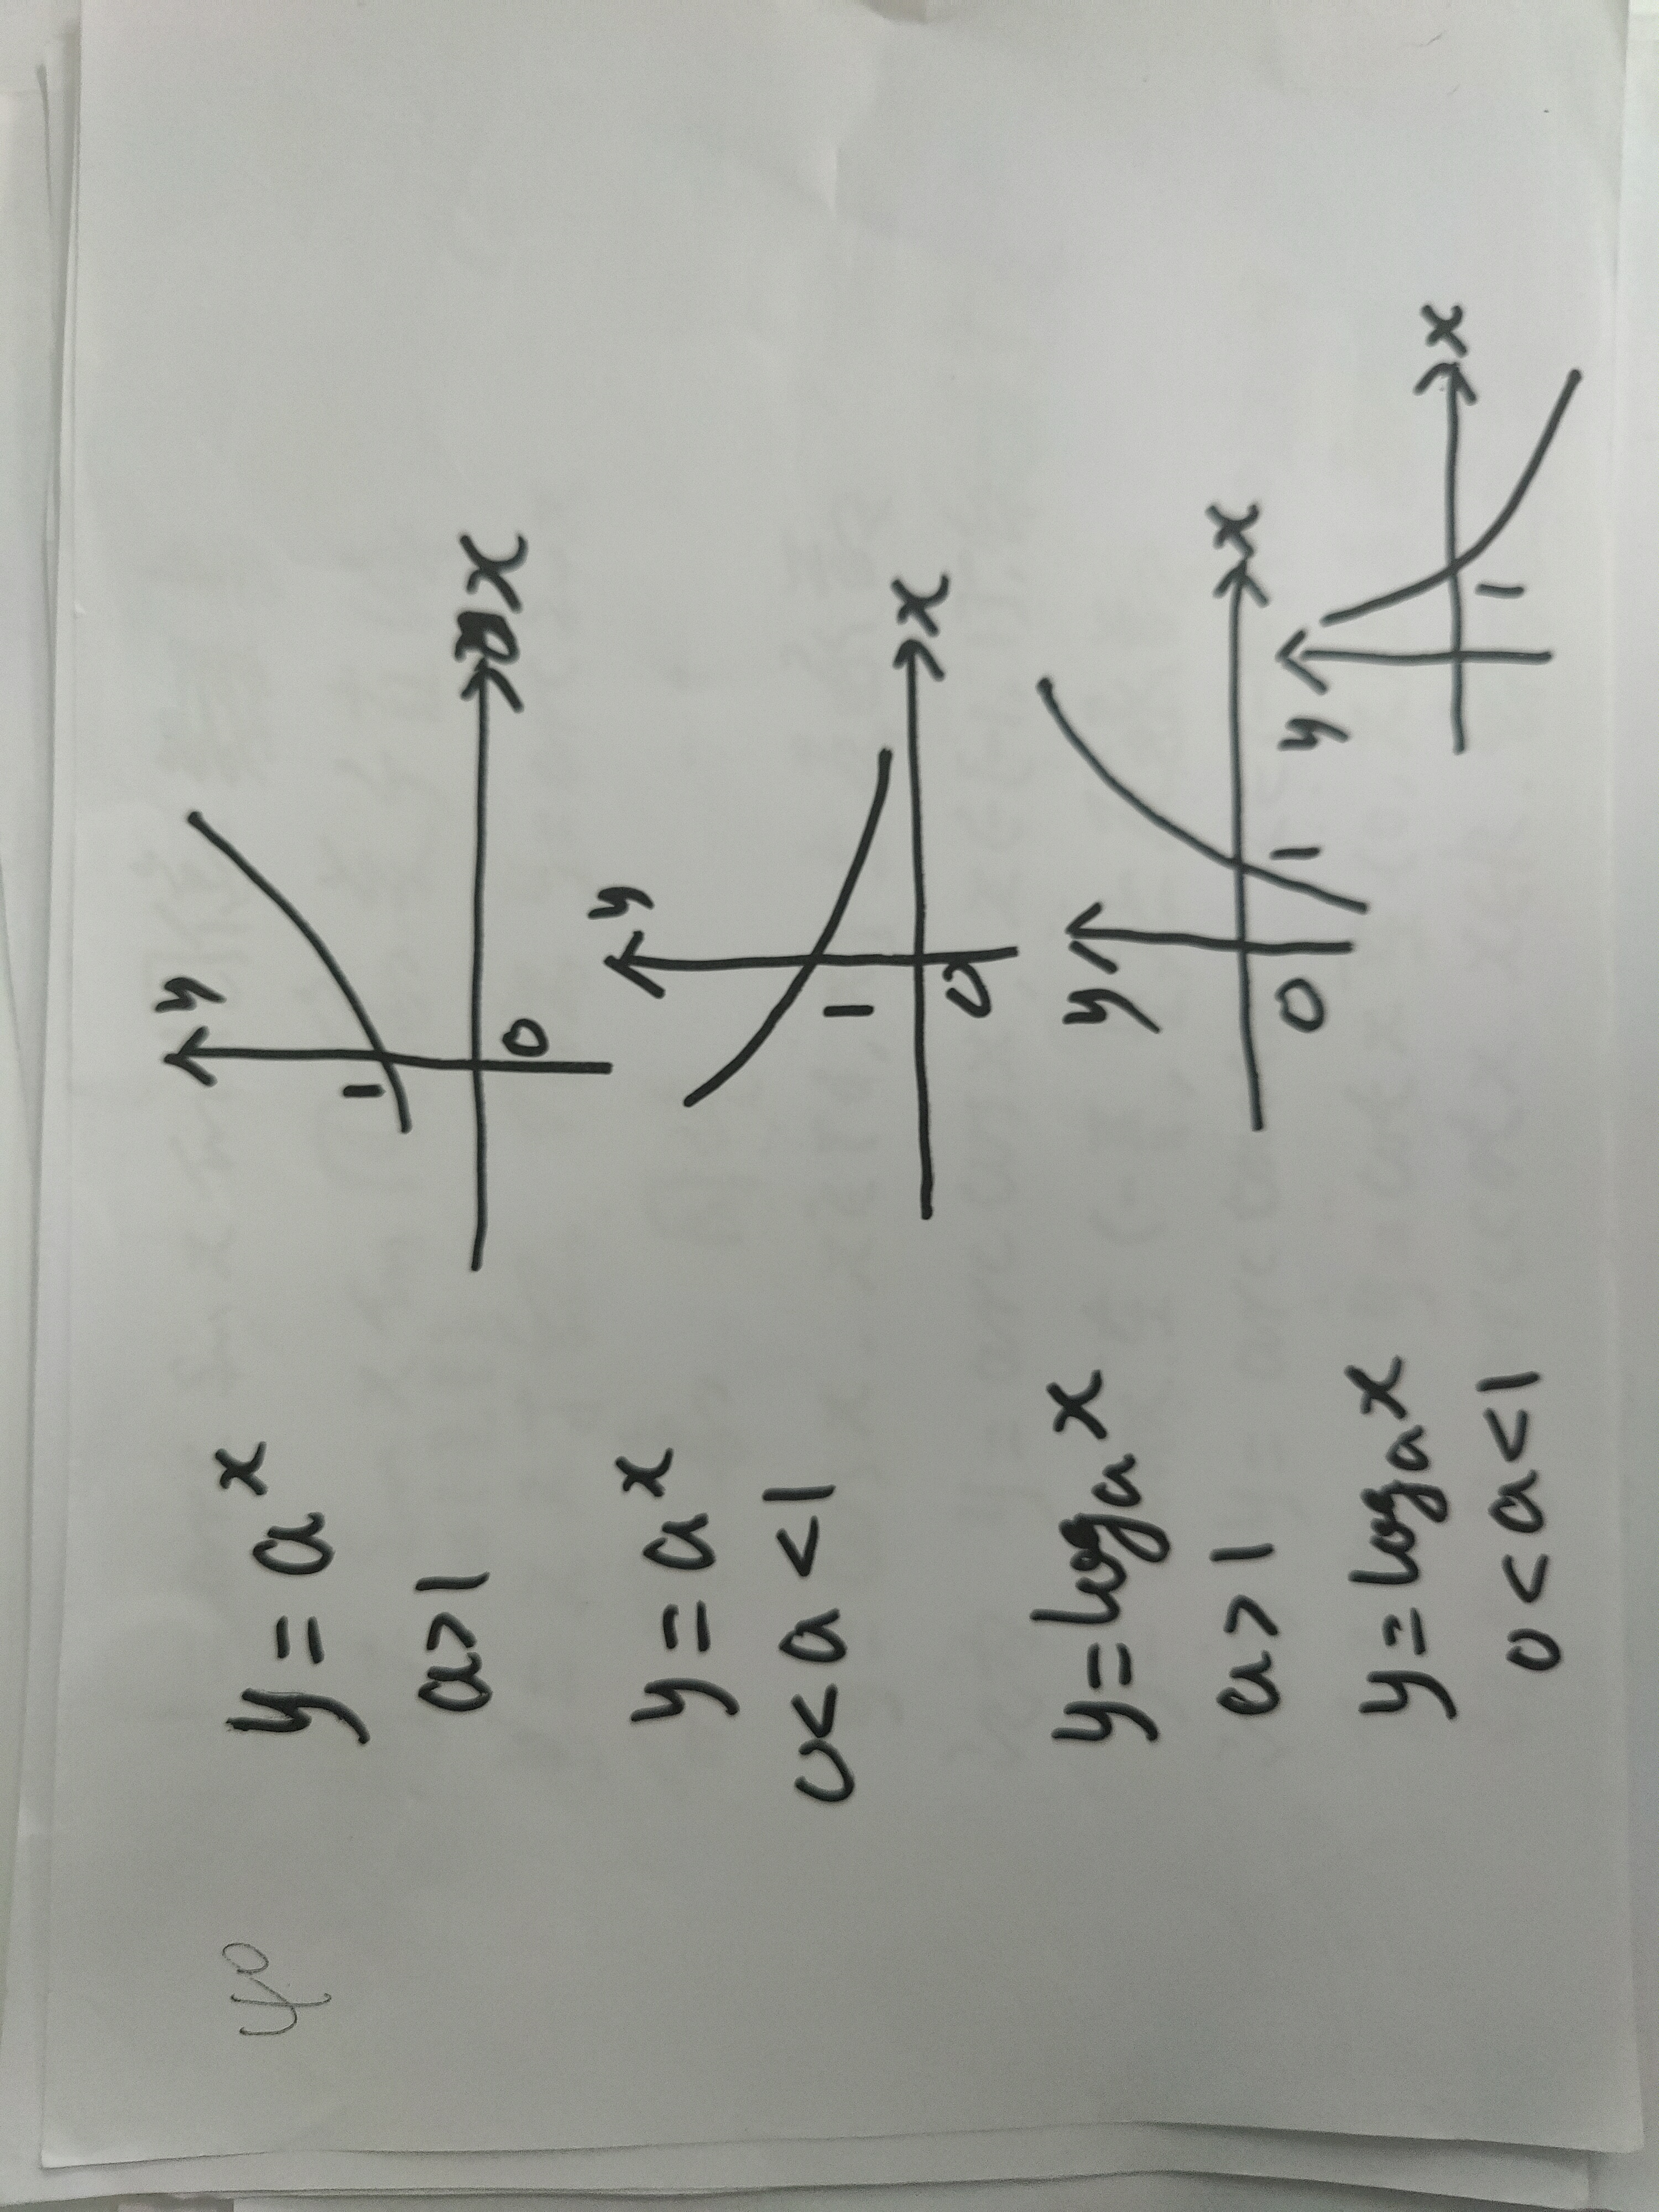 40
y = a^x
a>1
y
1
0
x
y = a^x
0<a<1
y
1
0
x
y=log_a x
a>1
y
0
1
x
y=log_a x
0<a<1
y
1
x